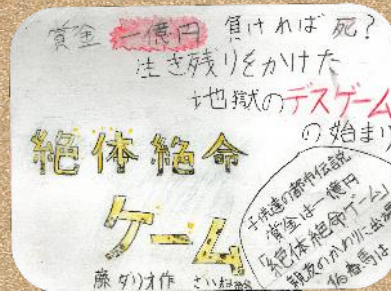 賞金 一億円 負ければ 死?
生き残りをかけた
地獄のデスゲーム
の始まり
絶体絶命
ゲーム
藤 ダリオ作 さいね絵
子供達の都市伝説
賞金は一億円
「絶体絶命ゲーム」
親友のかわりに出
春馬は